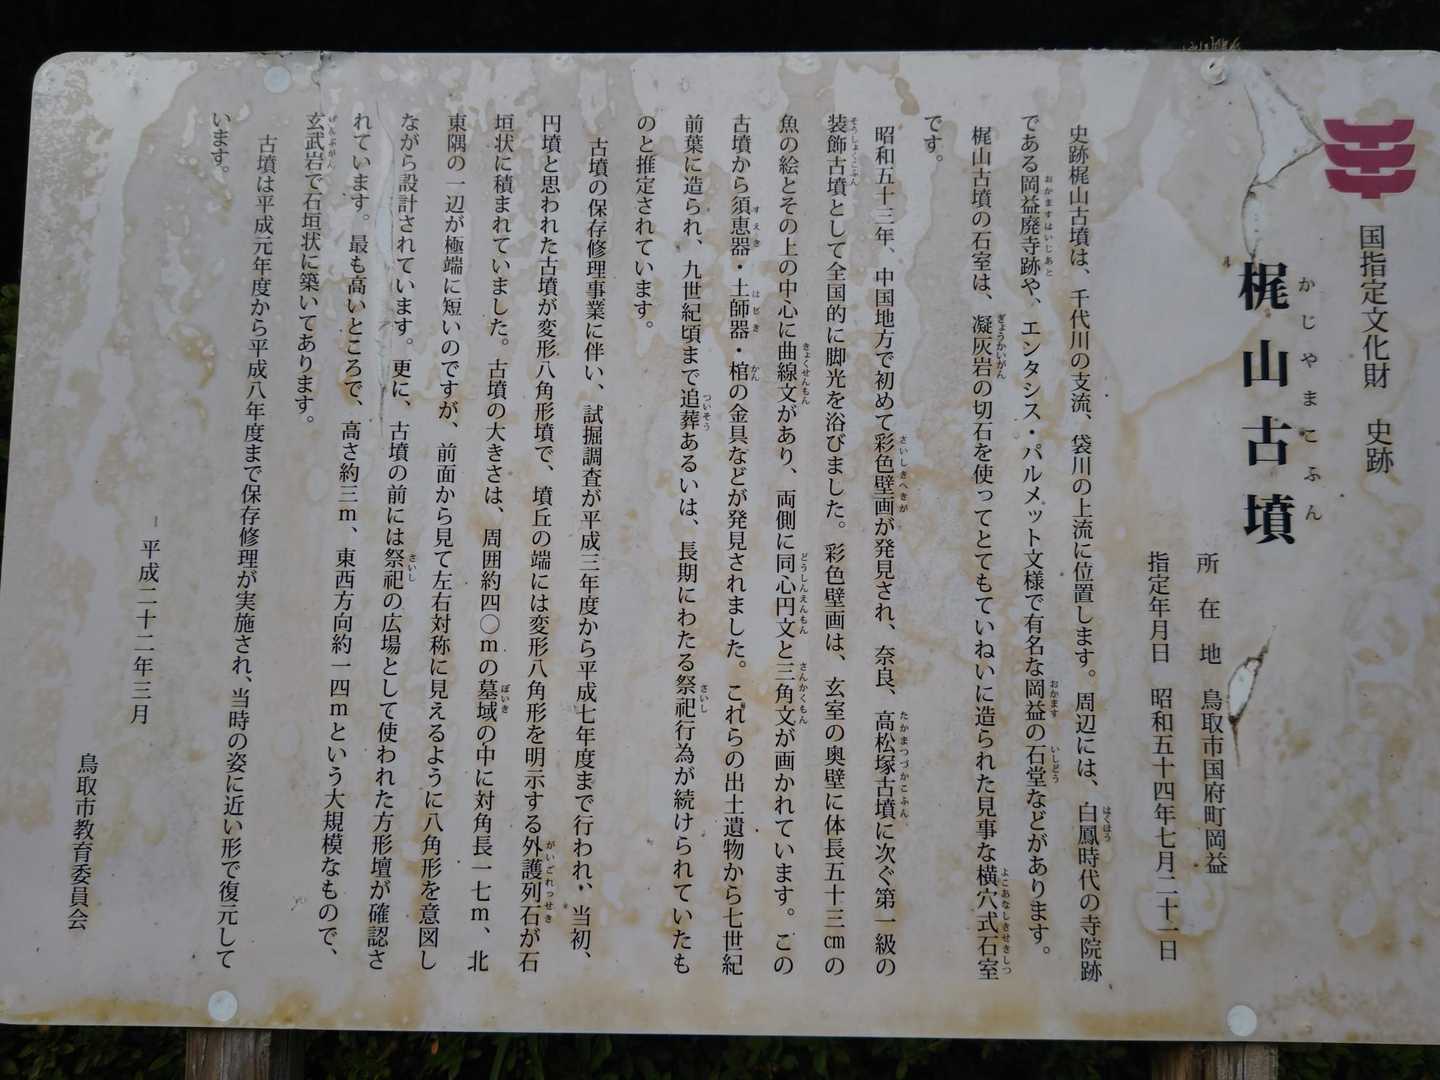 国指定文化財　史跡
かじやまこふん
梶山古墳
所在地　鳥取市国府町岡益
指定年月日　昭和五十四年七月二十一日
史跡梶山古墳は、千代川の支流、袋川の上流に位置します。周辺には、白鳳時代の寺院跡
である岡益廃寺跡や、エンタシス・パルメット文様で有名な岡益の石堂などがあります。
梶山古墳の石室は、凝灰岩の切石を使ってとてもていねいに造られた見事な横穴式石室
です。
昭和五十三年、中国地方で初めて彩色壁画が発見され、奈良、高松塚古墳に次ぐ第一級の
装飾古墳として全国的に脚光を浴びました。彩色壁画は、玄室の奥壁に体長五十三㎝の
魚の絵とその上の中心に曲線文があり、両側に同心円文と三角文が画かれています。この
古墳から須恵器・土師器・棺の金具などが発見されました。これらの出土遺物から七世紀
前葉に造られ、九世紀頃まで追葬あるいは、長期にわたる祭祀行為が続けられていたも
のと推定されています。
古墳の保存修理事業に伴い、試掘調査が平成三年度から平成七年度まで行われ、当初、
円墳と思われた古墳が変形八角形墳で、墳丘の端には変形八角形を明示する外護列石が石
垣状に積まれていました。古墳の大きさは、周囲約四〇ｍの墓域の中に対角長一七ｍ、北
東隅の一辺が極端に短いのですが、前面から見て左右対称に見えるように八角形を意図し
ながら設計されています。更に、古墳の前には祭祀の広場として使われた方形壇が確認さ
れています。最も高いところで、高さ約三ｍ、東西方向約一四ｍという大規模なもので、
玄武岩で石垣状に築いてあります。
古墳は平成元年度から平成八年度まで保存修理が実施され、当時の姿に近い形で復元して
います。
平成二十二年三月
鳥取市教育委員会